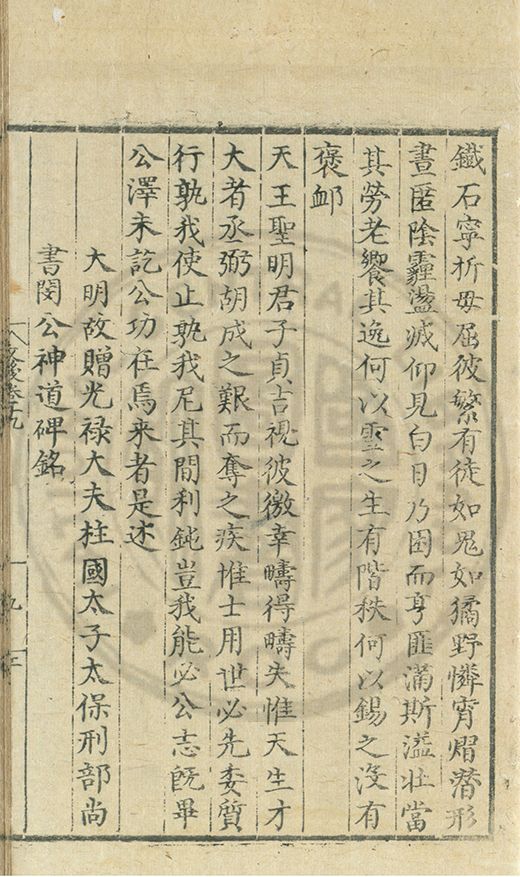 鐵石寧折毋屈彼繁有徒如鬼如獝野憐宵熠潛形
晝匿陰霾盪滅仰見白日乃困而亨匪滿斯溢壯當
其勞老饗其逸何以霊之生有階秩何以錫之沒有
褒卹
天王聖明君子貞吉視彼徼幸疇得疇失惟天生才
大者丞弼胡成之艱而奪之疾惟士用世必先委質
行孰我使止孰我尼其間利鈍豈我能必公志旣畢
公澤未訖公功在焉来者是述
大明故贈光祿大夫柱國太子太保刑部尚
書閔公神道碑銘